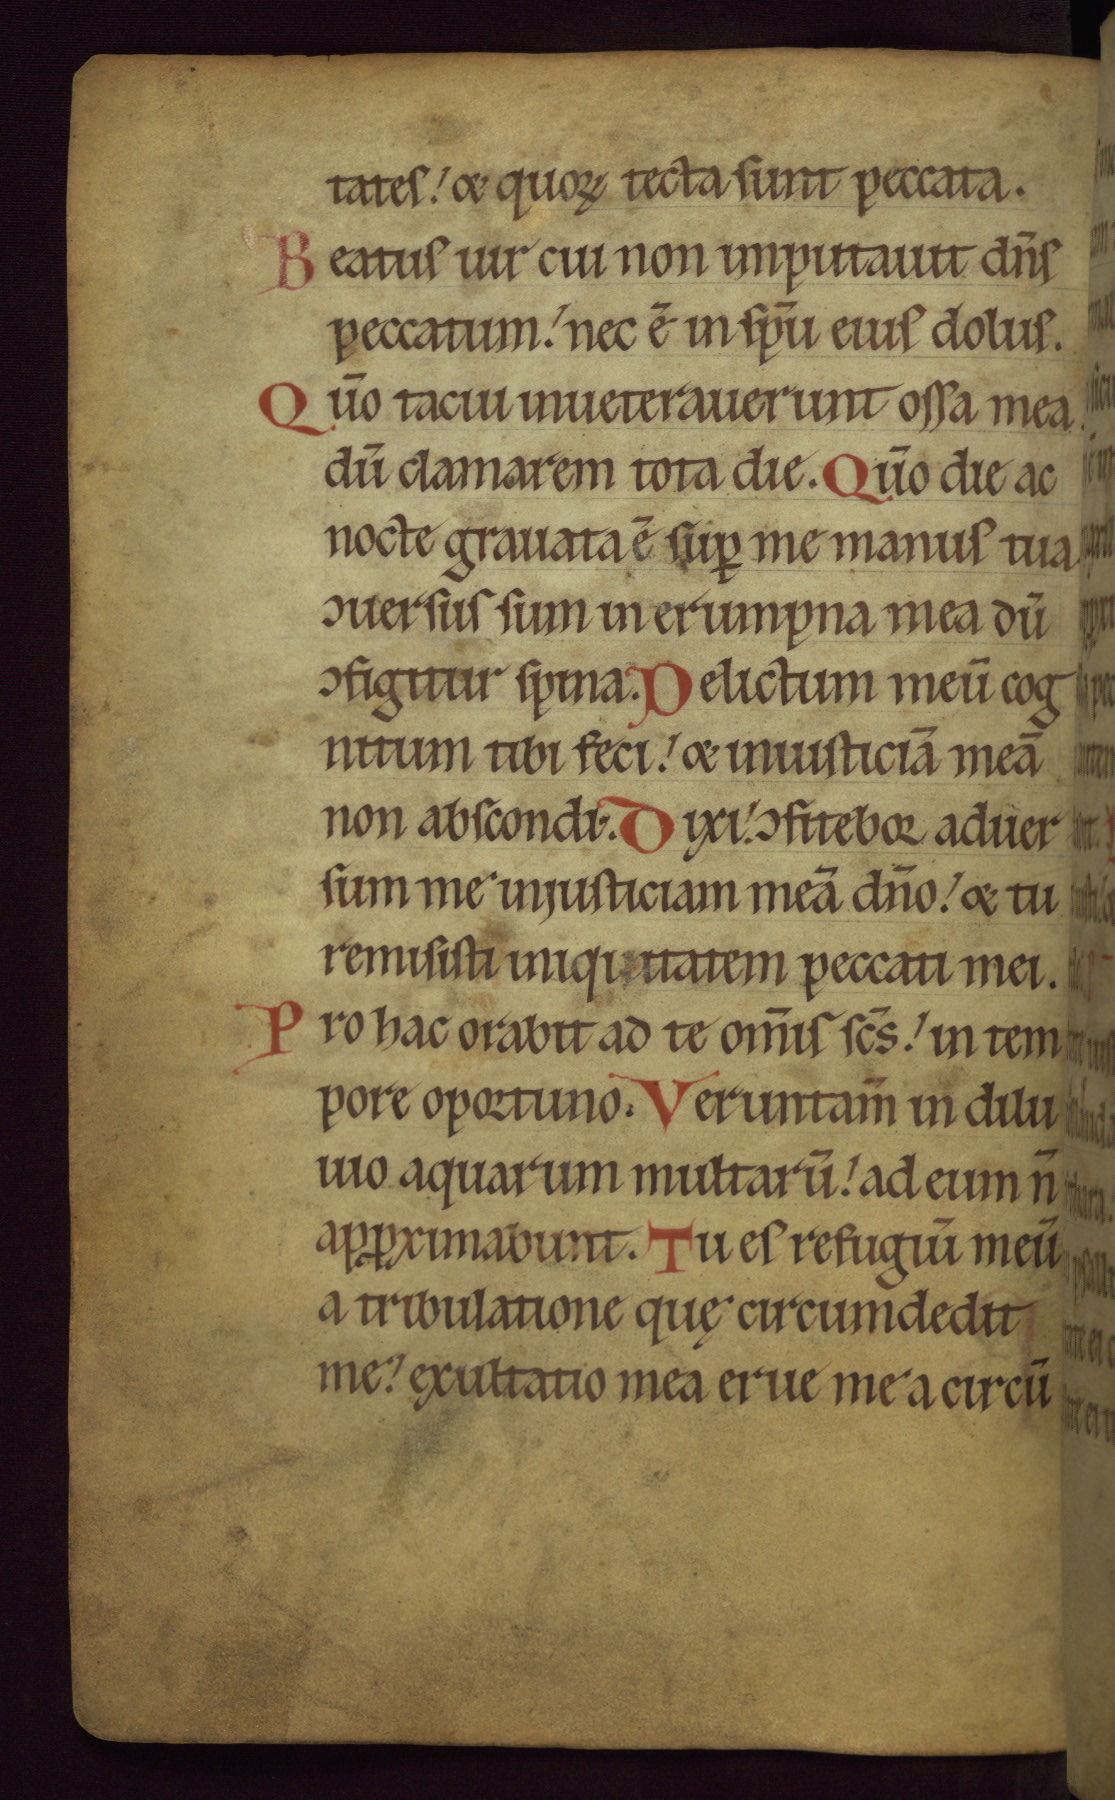 tates! & quoꝝ tecta sunt peccata.
Beatus uir cui non imputauit dn̄s
peccatum! nec ē in sp̄u eius dolus.
Qūo tacui inueterauerunt ossa mea.
dū clamarem tota die. Qūo die ac
nocte grauata ē suꝑ me manus tua
ↄuersus sum in erumpna mea dū
ↄfigitur spina. Delictum meū cog
nitum tibi feci! & iniusticiā meā
non abscondi. Dixi! ↄfitebor aduer
sum me iniusticiam meā dn̄o! & tu
remisisti iniquitatem peccati mei.
Pro hac orabit ad te om̄is sc̄s! in tem
pore oportuno. Veruntam̄ in dilu
uio aquarum multarū! ad eum n̄
apꝓximabunt. Tu es refugiū meū
a tribulatione quę circumdedit
me! exultatio mea erue me a circū